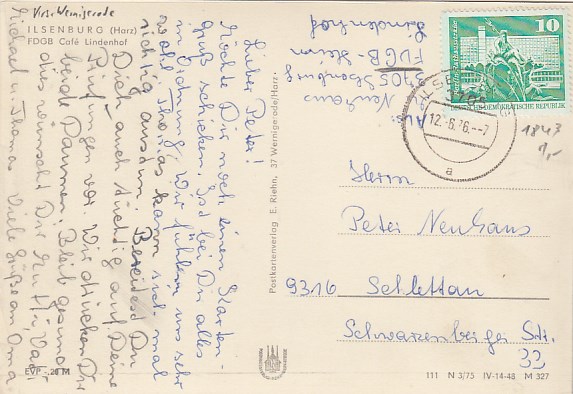 Kreis Wernigerode
ILSENBURG (Harz)
FDGB Café Lindenhof
Lieber Peter!
Möchte Dir noch einen Karten-
gruß schicken. Ist bei Dir alles
in Ordnung? Wir fühlen uns sehr
wohl. Thomas kann sich mal
richtig austun. Bereitest Du
Dich auch tüchtig auf Deine
Prüfungen vor. Wir drücken Dir
beide Daumen. Bleib gesund
das wünscht Dir Mutti, Vati
Michael u. Thomas Viele Grüße an Oma
EVP -,20 M
Postkartenverlag E. Riehn, 37 Wernigerode/Harz
Neuhaus
3705 Ilsenburg
FDGB-Heim
Lindenhof
10
DEUTSCHE DEMOKRATISCHE REPUBLIK
ILSENBURG
3705
12.-6.76.--7
a
1843
1,-
Herrn
Peter Neuhaus
9316 Schlettau
Schwarzenberger Str.
32
111 N 3/75 IV-14-48 M 327